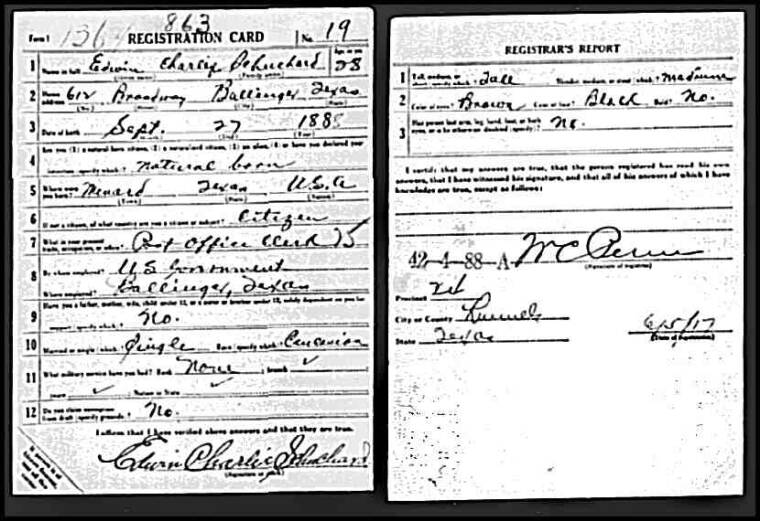 863
Form 1 1364 REGISTRATION CARD No. 19
1 Name in full Edwin Charlie Schuchard Age, in yrs 28
2 Home address 612 Broadway Ballinger Texas
3 Date of birth Sept. 27 1888
4 Are you (1) a natural born citizen, (2) a naturalized citizen, (3) an alien, (4) or have you declared your intention (specify which)? natural born
5 Where were you born? Menard Texas U.S.A
6 If not a citizen, of what country are you a citizen or subject? Citizen
7 What is your present trade, occupation, or office? Post Office Clerk 25
8 By whom employed? U S Government
Where employed? Ballinger, Texas
9 Have you a father, mother, wife, child under 12, or a sister or brother under 12, solely dependent on you for support (specify which)? No.
10 Married or single (which)? Single Race (specify which)? Caucasian
11 What military service have you had? Rank None ; branch ✓
years ✓ ; Nation or State ✓
12 Do you claim exemption from draft (specify grounds)? No.
I affirm that I have verified above answers and that they are true.
Edwin Charlie Schuchard
(Signature or mark)
REGISTRAR'S REPORT
1 Tall, medium, or short (specify which)? Tall Slender, medium, or stout (which)? Medium
2 Color of eyes? Brown Color of hair? Black Bald? No.
3 Has person lost arm, leg, hand, foot, or both eyes, or is he otherwise disabled (specify)? No.
I certify that my answers are true, that the person registered has read his own
answers, that I have witnessed his signature, and that all of his answers of which I have
knowledge are true, except as follows:
42-4-88-A W C Penn
(Signature of registrar)
Precinct
City or County Runnels
State Texas 6/5/17
(Date of registration)